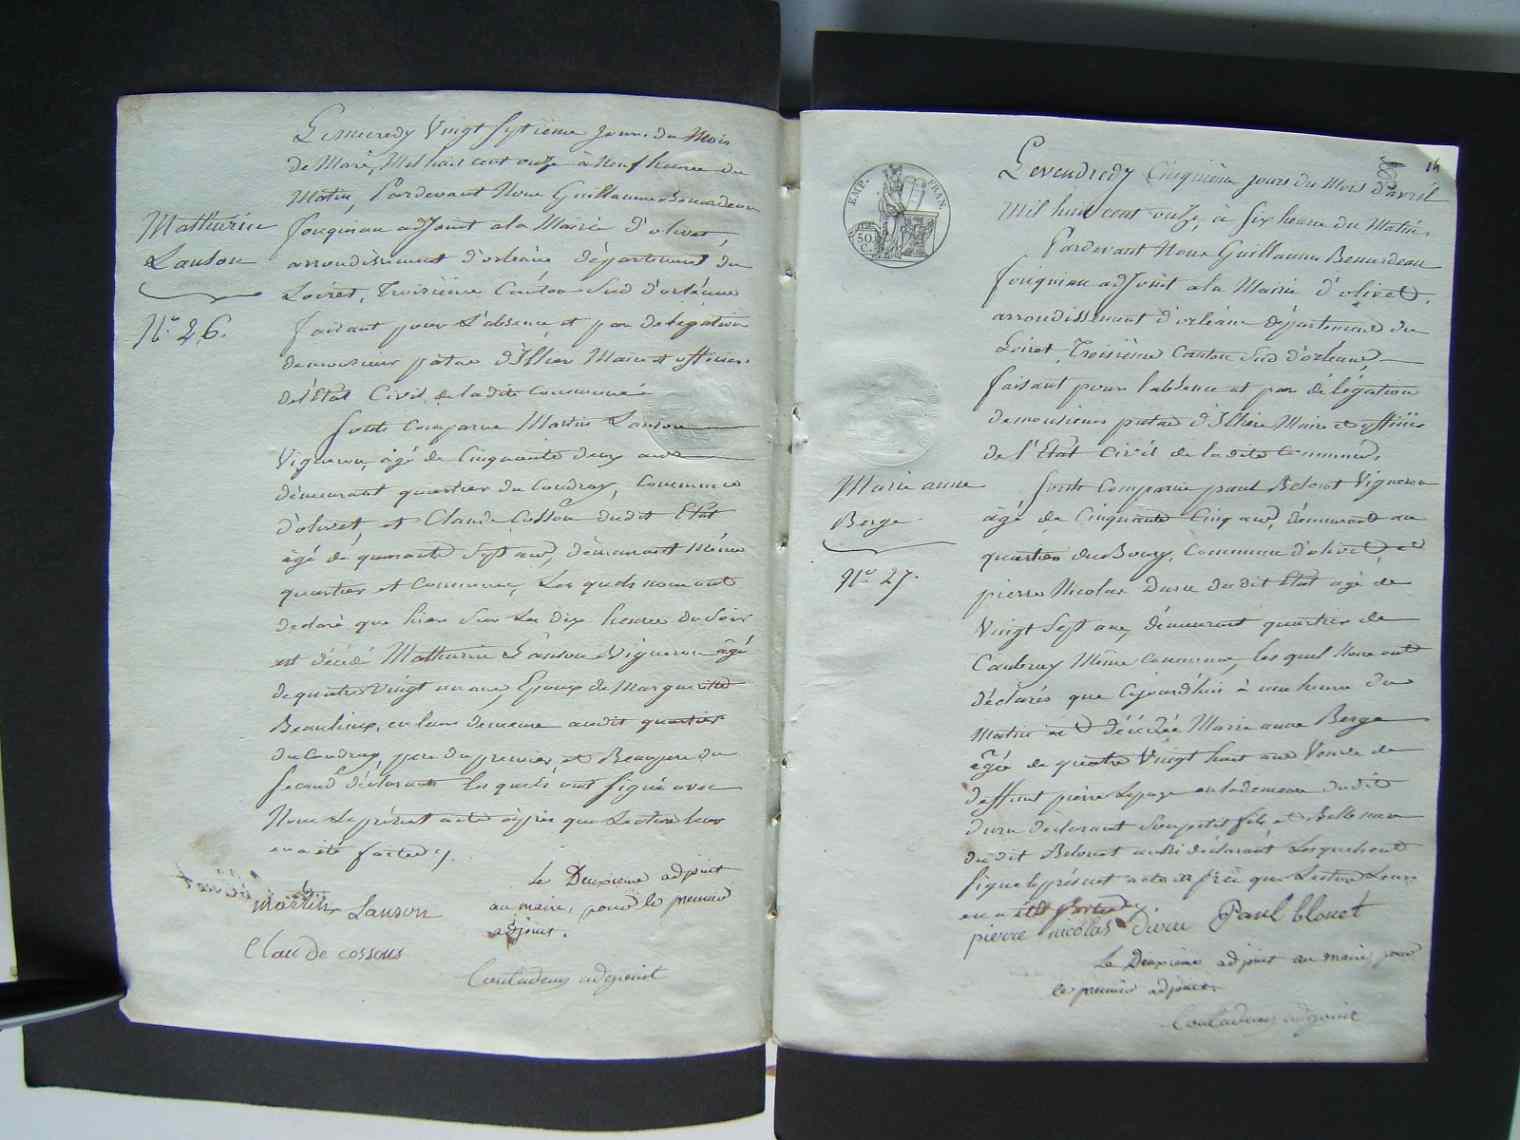 Le mercredy Vingt Septieme jour du Mois
de Mars, Mil huit cent onze à Neuf heures du
Matin, Pardevant Nous Guillaume Benardeau
fougineau adjoint a la Mairie d'olivet,
arrondissement d'orléans département du
Loiret, Troisième Canton Sud d'orléans
faisant pour L'absence et par délégation
de monsieur patas d'Illiers Maire et officier
de l'Etat Civil de la dite Commune
Mathurin
Lanson
N.° 26.
Sont Comparus Martin Lanson
Vigneron, âgé de Cinquante deux ans
demeurant quartier du Coudray, Commune
d'olivet et Claude Cosson dudit Etat
âgé de quarante Sept ans, demeurant même
quartier et Commune, Lesquels nous ont
déclaré que hier Sur Les dix heures du Soir
est décédé Mathurin Lanson Vigneron âgé
de quatre Vingt un ans, Epoux de Marguerite
Beaulieux, en leur demeure audit quartier
du Coudray, pere du premier et Beaupere du
Second déclarant Lesquels ont Signé avec
Nous Le présent acte après que Lecture leur
en a été faitte./.
martin Lanson
Claude cossons
Le Deuxieme adjoint
au maire, pour le premier
adjoint.
Couladeus adjoint
14
EMP. FRAN.
50 C.
Le vendredy Cinquième jours du Mois d'avril
Mil huit cent onze, à Six heures du Matin.
Pardevant Nous Guillaume Benardeau
fougineau adjoint a la Mairie d'olivet,
arrondissement d'orléans département du
Loiret, Troisième Canton Sud d'orléans
faisant pour l'absence et par délégation
de monsieur patas d'Illiers Maire et officier
de l'Etat Civil de la dite Commune,
Marie anne
Berge
N.° 27.
Sont Comparus paul Belouet Vigneron
âgé de Cinquante Cinq ans, demeurant au
quartier du Bourg, Commune d'olivet, et
pierre Nicolas Duru dudit Etat agé de
Vingt Sept ans, demeurant quartier de
Caubray Même commune, lesquel Nous ont
déclarés que Cejourd'hui à une heure du
Matin est décédée Marie anne Berge
âgée de quatre Vingt huit ans Veuve de
deffunt pierre Lepage en la demeure dudit
Duru déclarant Son petit fils et Belle mere
du dit Belouet aussi déclarant Lesquels ont
Signé le présent acte après que Lecture Leur
en a été faitte./.
pierre nicolas Duru Paul blouet
Le Deuxieme adjoint au maire, pour
le premier adjoint.
Couladeus adjoint